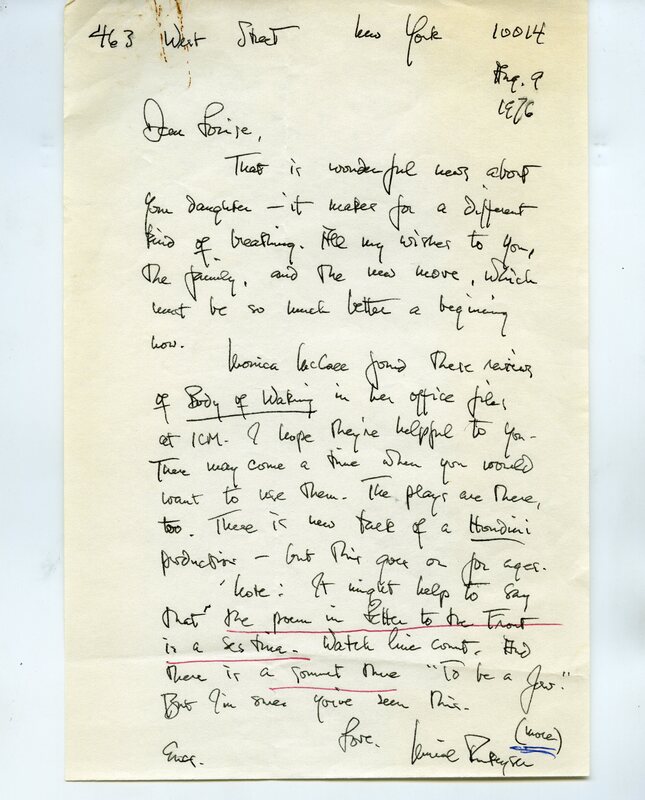 463 West Street New York 10014
Aug. 9
1976
Dear Louise,
That is wonderful news about
your daughter — it makes for a different
kind of breathing. All my wishes to you,
the family, and the new move, which
must be so much better a begining
now.
Monica McCall found these reviews
of Body of Waking in her office files
at ICM. I hope they're helpful to you.
There may come a time when you would
want to use them. The plays are there,
too. There is new talk of a Houdini
production — but this goes on for ages.
Note: It might help to say
that "the poem in Letter to the Front
is a sestina. Watch line count. And
there is a sonnet there "To be a Jew."
But I'm sure you've seen this.
Love,
(more)
Encs. Muriel Rukeyser